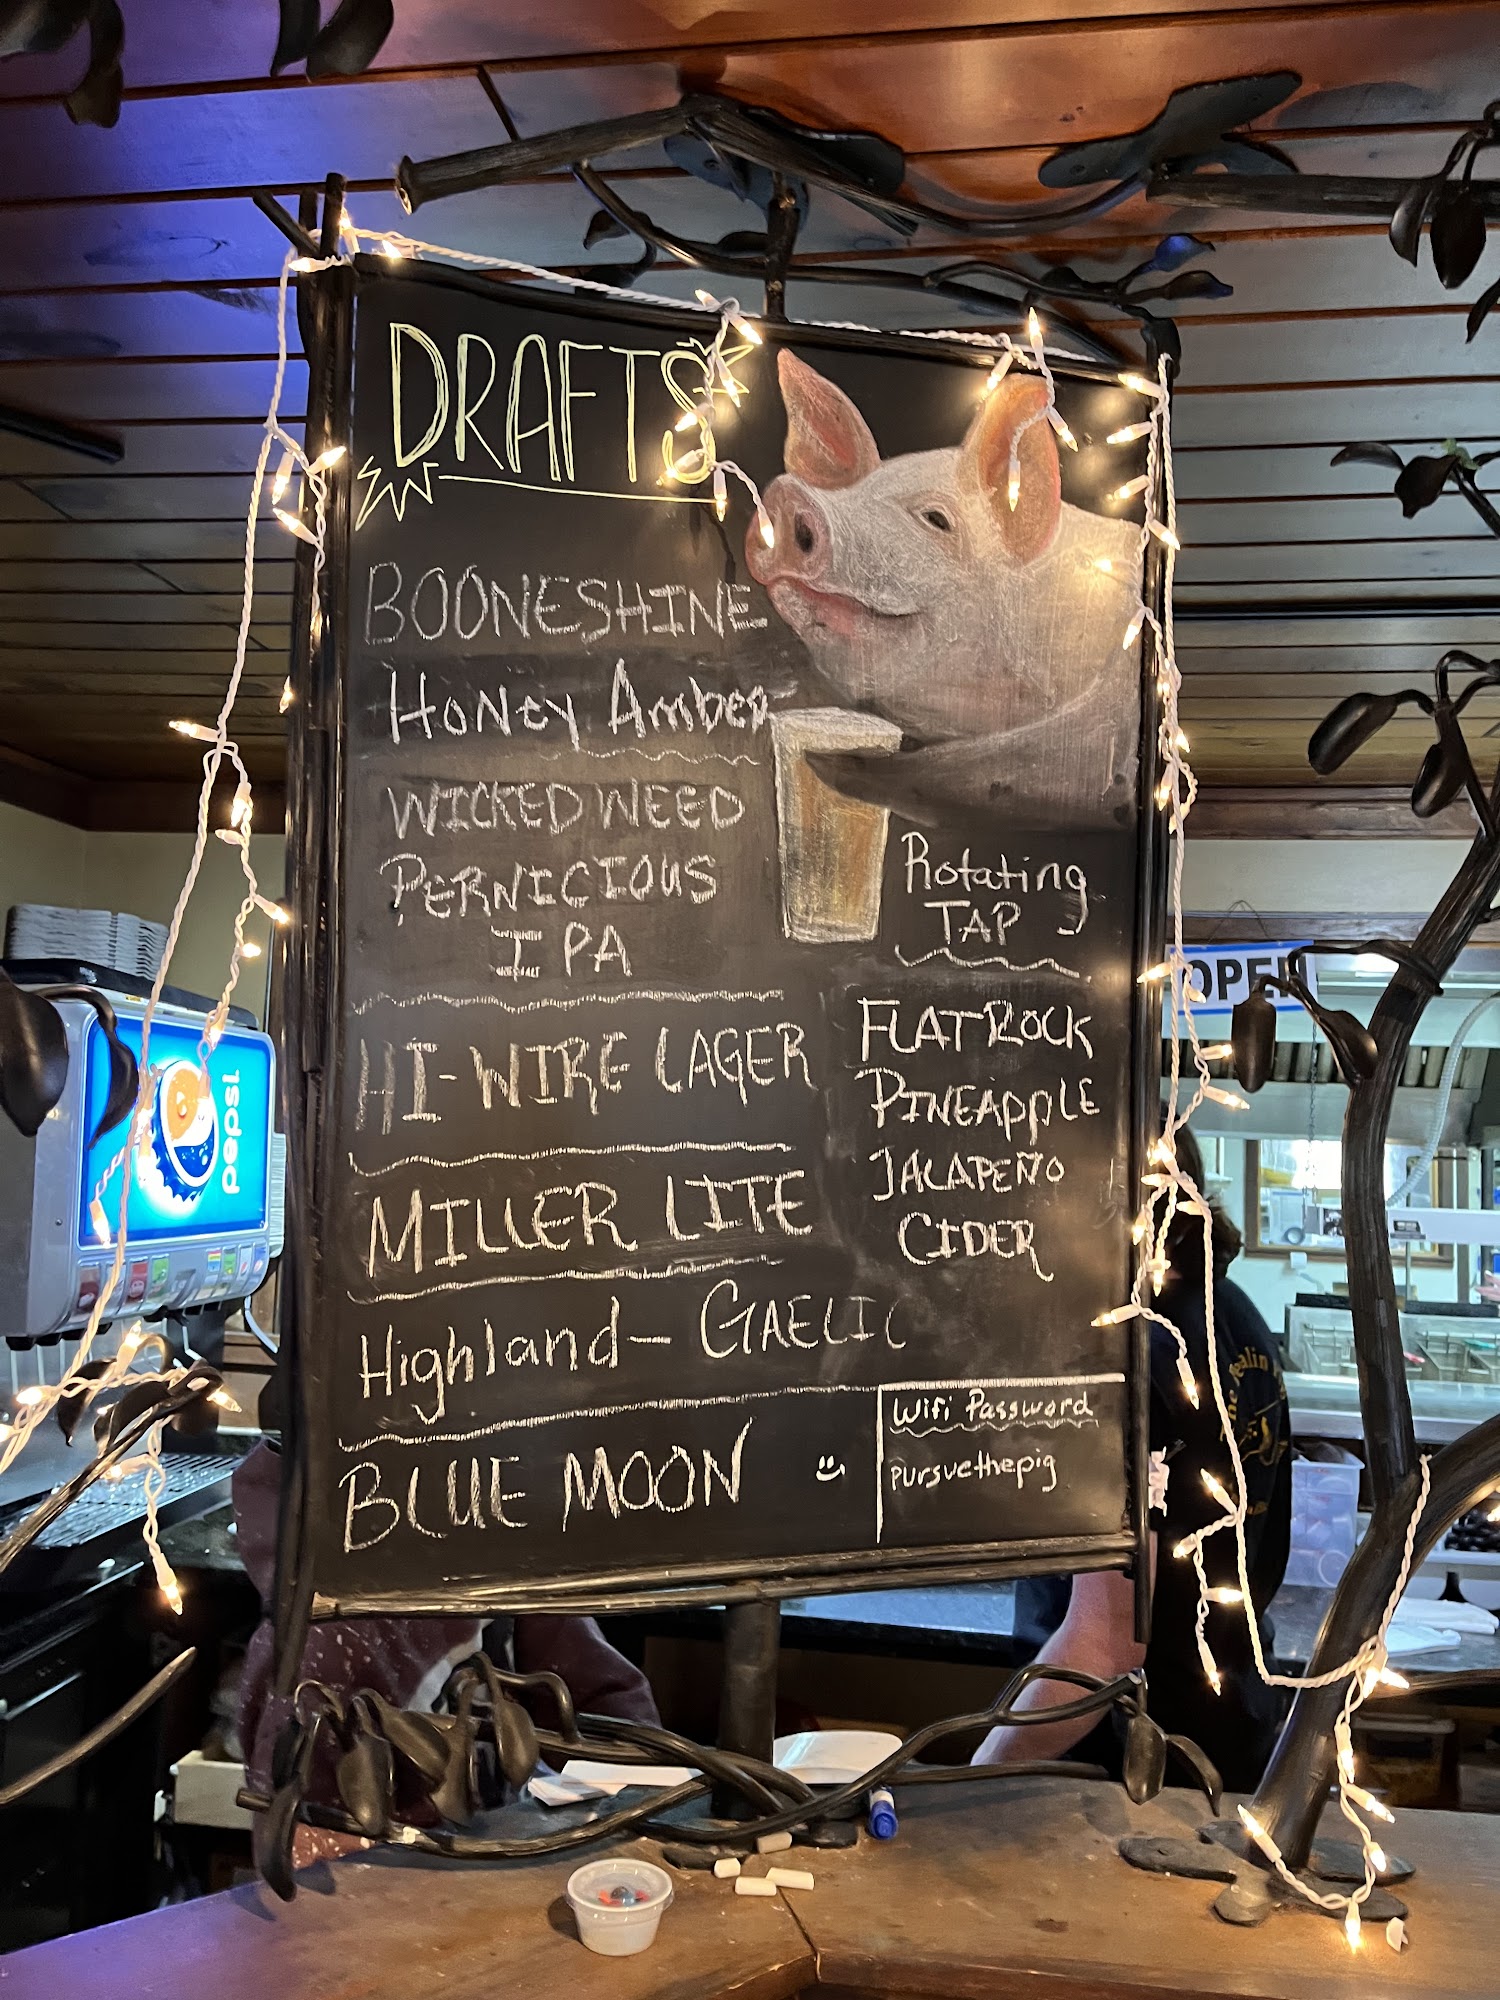 DRAFTS
BOONESHINE
Honey Amber
WICKED WEED
PERNICIOUS
IPA
HI-WIRE LAGER
MILLER LITE
Highland- GAELIC
BLUE MOON
Rotating
TAP
FLAT ROCK
PINEAPPLE
JALAPEÑO
CIDER
Wifi Password
pursuethepig
OPEN
pepsi